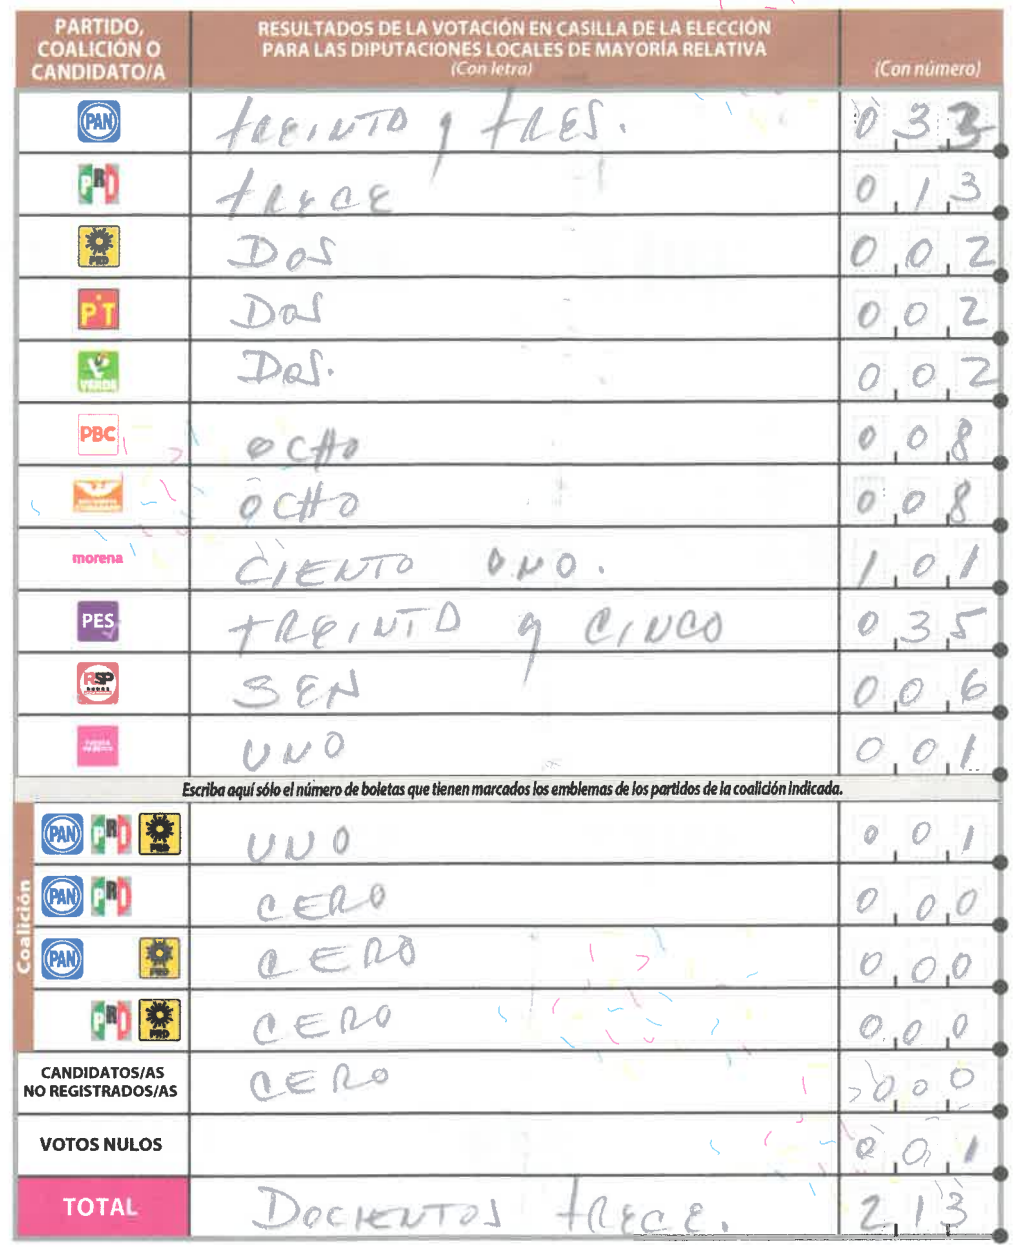 PARTIDO, COALICIÓN O CANDIDATO/A
RESULTADOS DE LA VOTACIÓN EN CASILLA DE LA ELECCIÓN PARA LAS DIPUTACIONES LOCALES DE MAYORÍA RELATIVA
(Con letra)
(Con número)
PAN treinta y tres. 033
PRI trece 013
PRD Dos 002
PT Dos 002
VERDE Dos. 002
PBC ocho 008
ocho 008
morena CIENTO UNO. 101
PES treinta y CINCO 035
RSP SEN 006
UNO 001
Escriba aquí sólo el número de boletas que tienen marcados los emblemas de los partidos de la coalición indicada.
Coalición
PAN PRI PRD UNO 001
PAN PRI CERO 000
PAN PRD CERO 000
PRI PRD CERO 000
CANDIDATOS/AS NO REGISTRADOS/AS CERO 000
VOTOS NULOS 001
TOTAL DOCIENTOS trece. 213